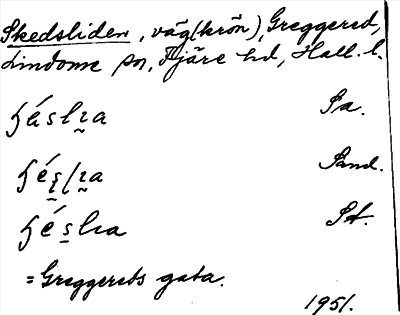 Skedsliden, väg(krön), Greggered,
Lindome sn, Fjäre hd, Hall. l.
Sa.
Sand.
St.
= Greggereds gata.
1951.